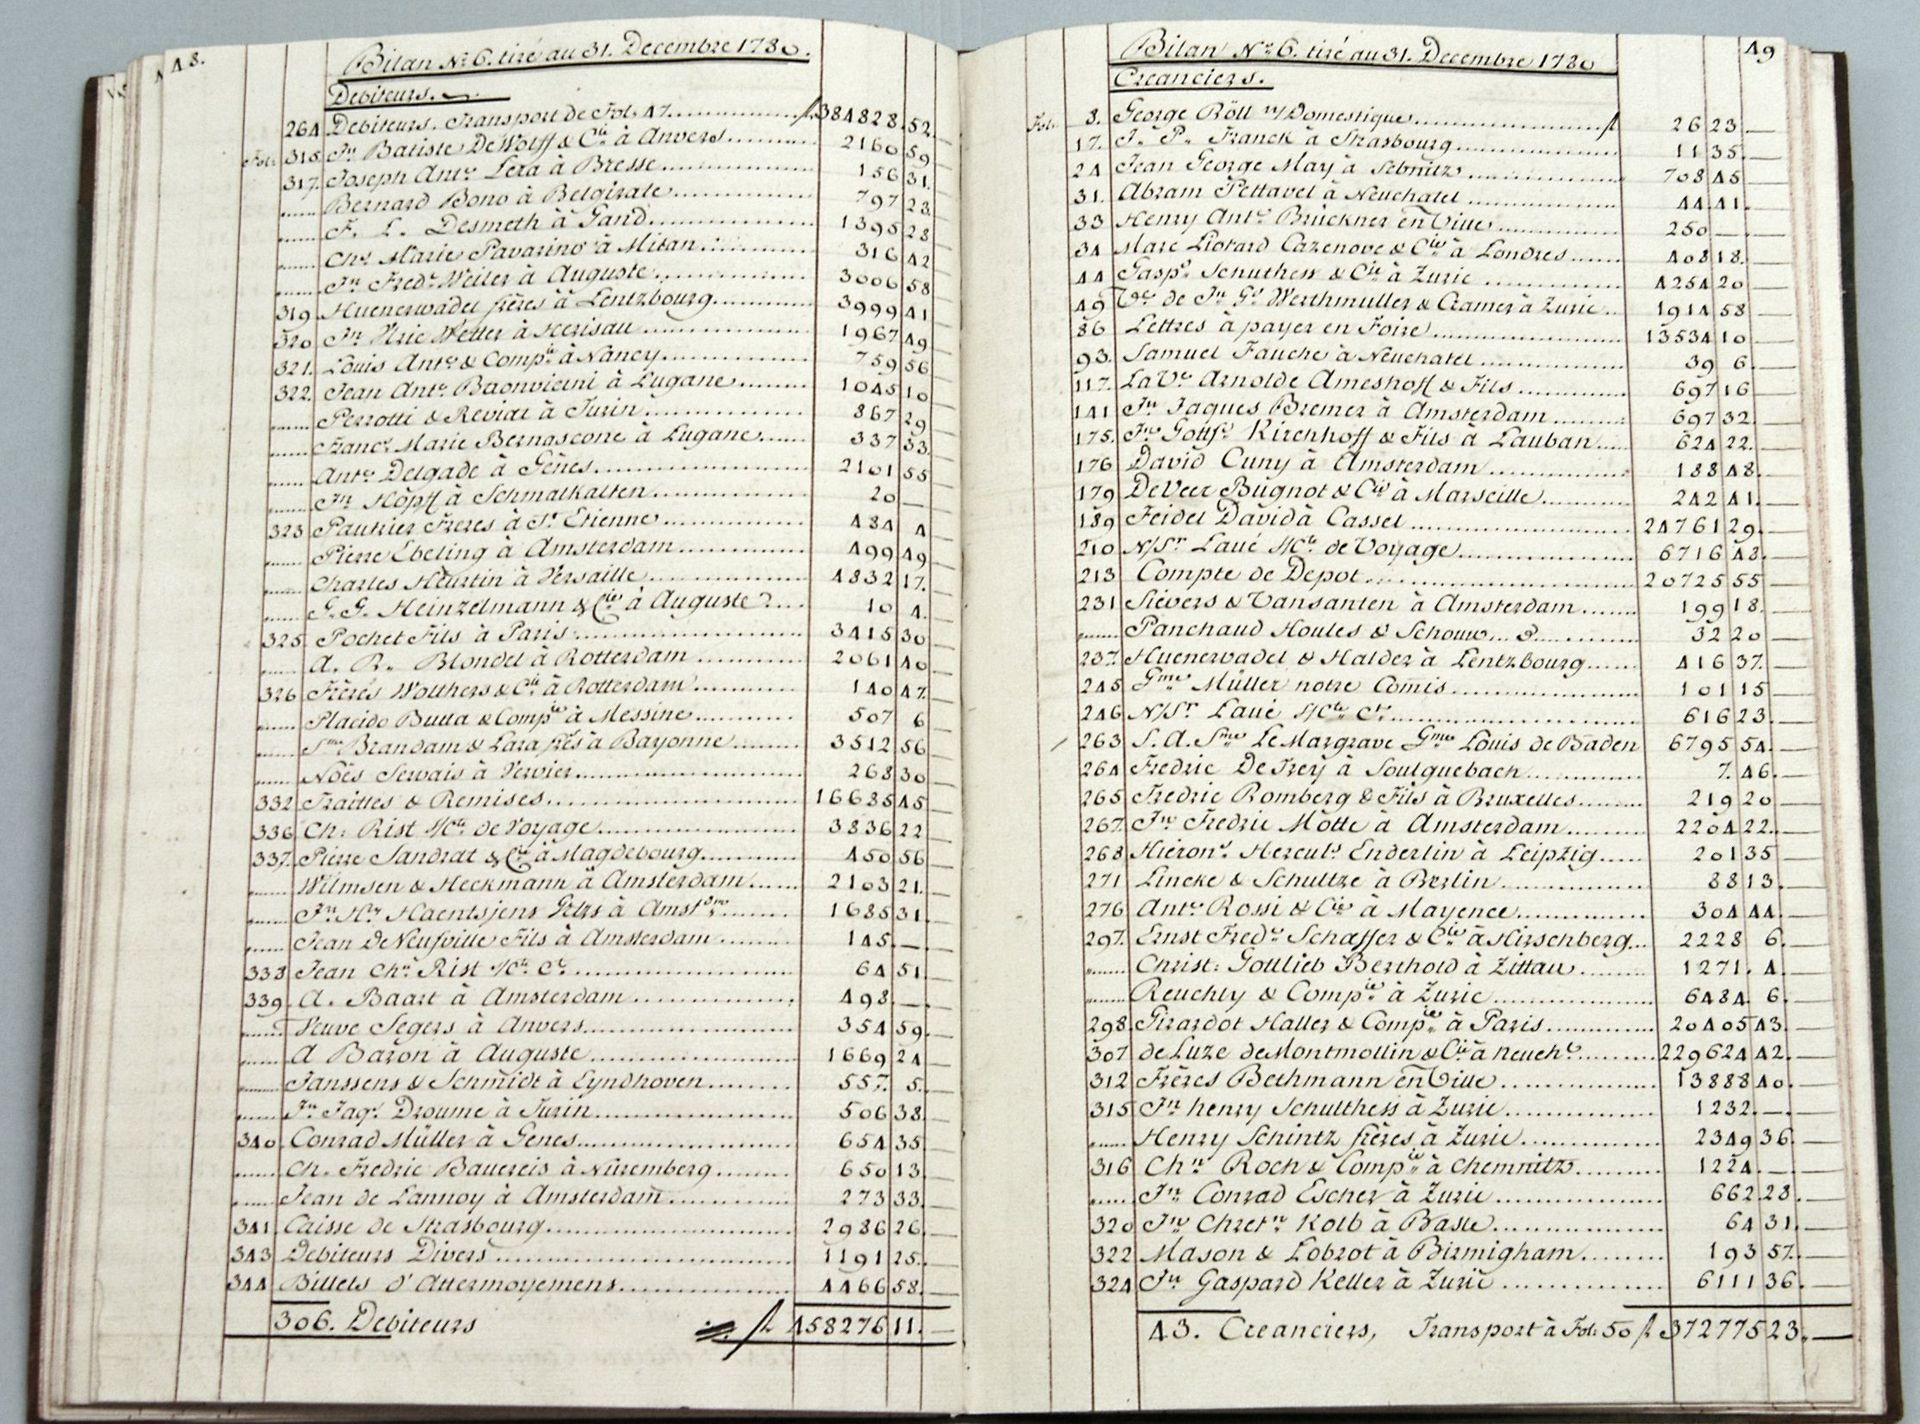 48.
Bilan No. 6. tiré au 31. Decembre 1780.
Debiteurs.
264 Debiteurs. Transport de Fol. 47. f. 384828. 52.
Fol. 315. Jn Batiste DeWolff & Cie à Anvers 2160 59
317. Joseph Ant. Lera à Bresse 156 31.
Bernard Bono à Belgirate 797 23
F. L. Desmeth à Gand 1395 28
Ch. Marie Pavarino à Milan 316 42
Jn Fred. Weiler à Auguste 3006 58
319 Huenerwadel frères à Lentzbourg 3999 41
320 Jn Ulric Wetter à Herisau 1967 49
321. Louis Ant. & Compie à Nancy 759 56
322. Jean Ant. à Lugane 1045 10
Perrotti & à Turin 867 29
Franc. Marie Bernascone à Lugane 337 33.
Ant. Delgade à Gênes 2101 55
Jn Höpff à Schmalkalten 20 —
323 Paultier Freres à St Etienne 484 4
Pierre Ebeling à Amsterdam 499 49
Charles Heurtin à Versaille 4832 17.
G. G. Heinzelmann & Cie à Auguste 10 4.
325. Pochet Fils à Paris 3415 30
A. R. Blondel à Rotterdam 2061 40
326 Frères Wolthers & Cie à Rotterdam 140 47.
Placido Butta & Compie à Messine 507 6
Sme Brandam & Lara frès à Bayonne 3512 56
Noës Servais à Vervier 268 30
332 Traittes & Remises 16635 45
336 Ch: Rist S/Cte de Voyage 3836 22
337. Pierre Sandrat & Cie à Magdebourg 450 56
Wilmsen & Heckmann à Amsterdam 2103 21.
Jn Hy Haentsjens à Amstdm 1685 31
Jean DeNeufville Fils à Amsterdam 145. —
338 Jean Chn Rist S/Cte Ct 64 51
339. A. Baart à Amsterdam 498. —
Veuve Segers à Anvers 354 59.
A Baron à Auguste 1669 24
Janssens & Schmidt à Eyndhoven 557. 5.
Jn Jaq. Droume à Turin 506 38.
340 Conrad Müller à Genes 654 35
Ch. Fredric Bauereis à Nuremberg 650 13
Jean de Lannoy à Amsterdam 273 33.
341 Caisse de Strasbourg 2986 26.
343 Debiteurs Divers 1191 25.
344 Billets d'Attermoyemens 4466 58.
306. Debiteurs f. 458276 11. —
49
Bilan No. 6. tiré au 31. Decembre 1780
Creanciers.
Fol. 8. George Röll n/Domestique f 26 23 —
17. J. P. Franck à Strasbourg 11 35. —
24 Jean George May à Sebnitz 708 45 —
31. Abram Pettavel à Neuchatel 44 41. —
33 Henry Ant. Brückner en Ville 250 — —
34 Marc Liotard Cazenove & Cie à Londres 408 18. —
44 Gasp. Schulthess & Cie à Zuric 4254 20 —
49 Ve de Jn Gd Werthmuller & Cramer à Zuric 1914 58 —
86 Lettres à payer en Foire 13534 10 —
93. Samuel Fauche à Neuchatel 39 6. —
117. La Ve Arnolde Ameshoff & Fils 697 16 —
141 Jn Jaques Bremer à Amsterdam 697 32. —
175. Jn Gottf. Kirchhoff & Fils à Lauban 624 22. —
176 David Cuny à Amsterdam 188 48. —
179 DeVeer Bügnot & Cie à Marseille 242 41. —
189 Feidel David à Cassel 24761 29. —
210 N/Sr Laué S/Cte de Voyage 6716 48. —
213 Compte de Depot 20725 55 —
231 Sievers & Vansanten à Amsterdam 199 18. —
Panchaud Houles & Schouw 32 20 —
237. Huenerwadel & Halder à Lentzbourg 416 37. —
245 Gme Müller notre Comis 101 15 —
246 N/Sr Laué S/Cte Ct 616 23 —
263 S. A. Sme Le Margrave Gme Louis de Baden 6795 54. —
264 Fredric De Frey à Soulguebach 7. 46. —
265 Fredric Romberg & Fils à Bruxelles 219 20 —
267. Jn Fredric Motte a Amsterdam 2204 22. —
268 Hieron. Hercul. Enderlin à Leipzig 201 35 —
271 Lincke & Schultze à Berlin 88 13. —
276 Ant. Rossi & Cie à Mayence 304 44. —
297. Ernst Fred. Schaffer & Cie à Hirschberg 2228 6. —
Christ: Gottlieb Berthold à Zittau 1271. 4. —
Reuchly & Compie à Zuric 6484. 6. —
298. Girardot Haller & Compie à Paris 20405 43. —
307 de Luze de Montmollin & Cie à Neuchl 229624 42. —
312 Frères Bethmann en Ville 13888 40. —
315 Jn henry Schulthess à Zuric 1232. — —
Henry Schintz frères à Zuric 2349 36 —
316 Chn Roch & Compie à Chemnitz 1224. — —
Jn Conrad Escher à Zuric 662. 28. —
320 Jn Chretn Kolb à Basle 64 31. —
322 Mason & Lobrot à Birmigham 193 57. —
324 Jn Gaspard Keller à Zuric 6111 36. —
43. Creanciers, Transport à Fol: 50 f 372775 23. —